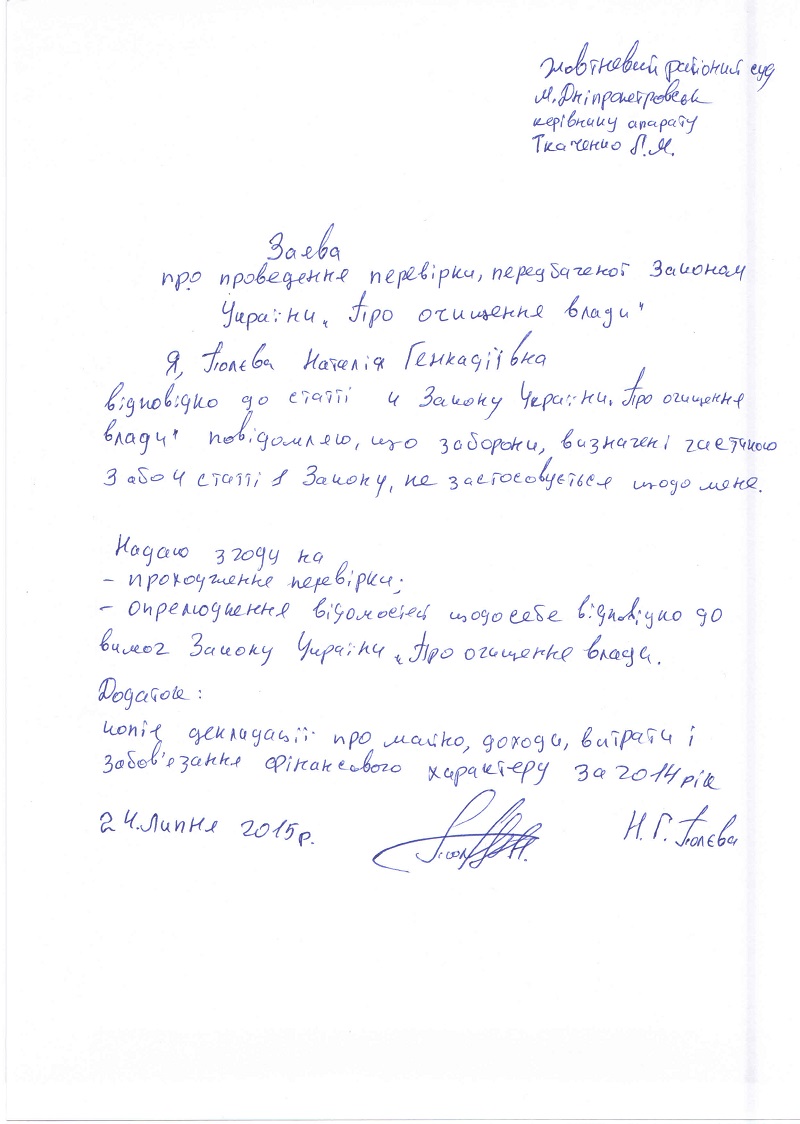 Жовтневий районий суд
м. Дніпропетровськ
керівнику апарату
Ткаченко Л.М.
Заява
про проведення перевірки, передбаченої Законом
України „Про очищення влади"
Я, Тюлєва Наталія Генкадіївна
відповідно до статті 4 Закону України „Про очищення
влади" повідомляю, що заборони, визначені частиною
3 або 4 статті 1 Закону, не застосовується щодо мене.
Надаю згоду на
- проходження перевірки;
- оприлюднення відомостей щодо себе відповідно до
вимог Закону України „Про очищення влади.
Додаток:
копія декларації про майно, доходи, витрати і
забов'язання фінансового характеру за 2014 рік
24 липня 2015 р.
Н. Г. Тюлєва